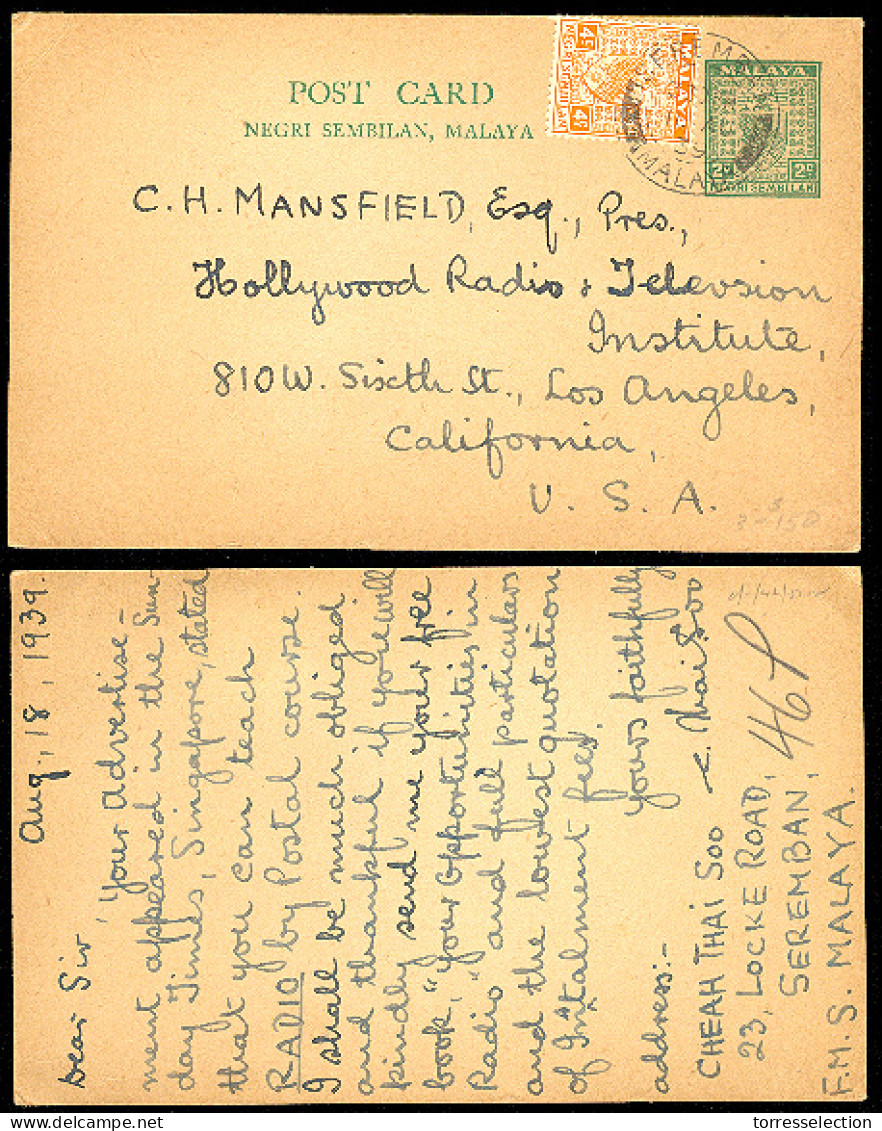 POST CARD
NEGRI SEMBILAN, MALAYA
4c 4c
NEGRI SEMBILAN
MALAYA
MALAYA
2c 2c
NEGRI SEMBILAN
C.H. MANSFIELD, Esq., Pres.,
Hollywood Radio & Televsion
Institute,
810 W. Sixth St., Los Angeles,
California,
U. S. A.
Aug., 18, 1939.
Dear Sir,
Your advertise-
ment appeared in the Sun-
day Times, Singapore, stated
that you can teach
RADIO by Postal course.
I shall be much obliged
and thankful if you will
kindly send me your free
book, "Your Opportunities in
Radio" and full particulars
and the lowest quotation
of Instalment fees.
Yours faithfully
Thai Soo
address:-
CHEAH THAI SOO
23, LOCKE ROAD,
SEREMBAN,
F.M.S. MALAYA.
467
torresselection